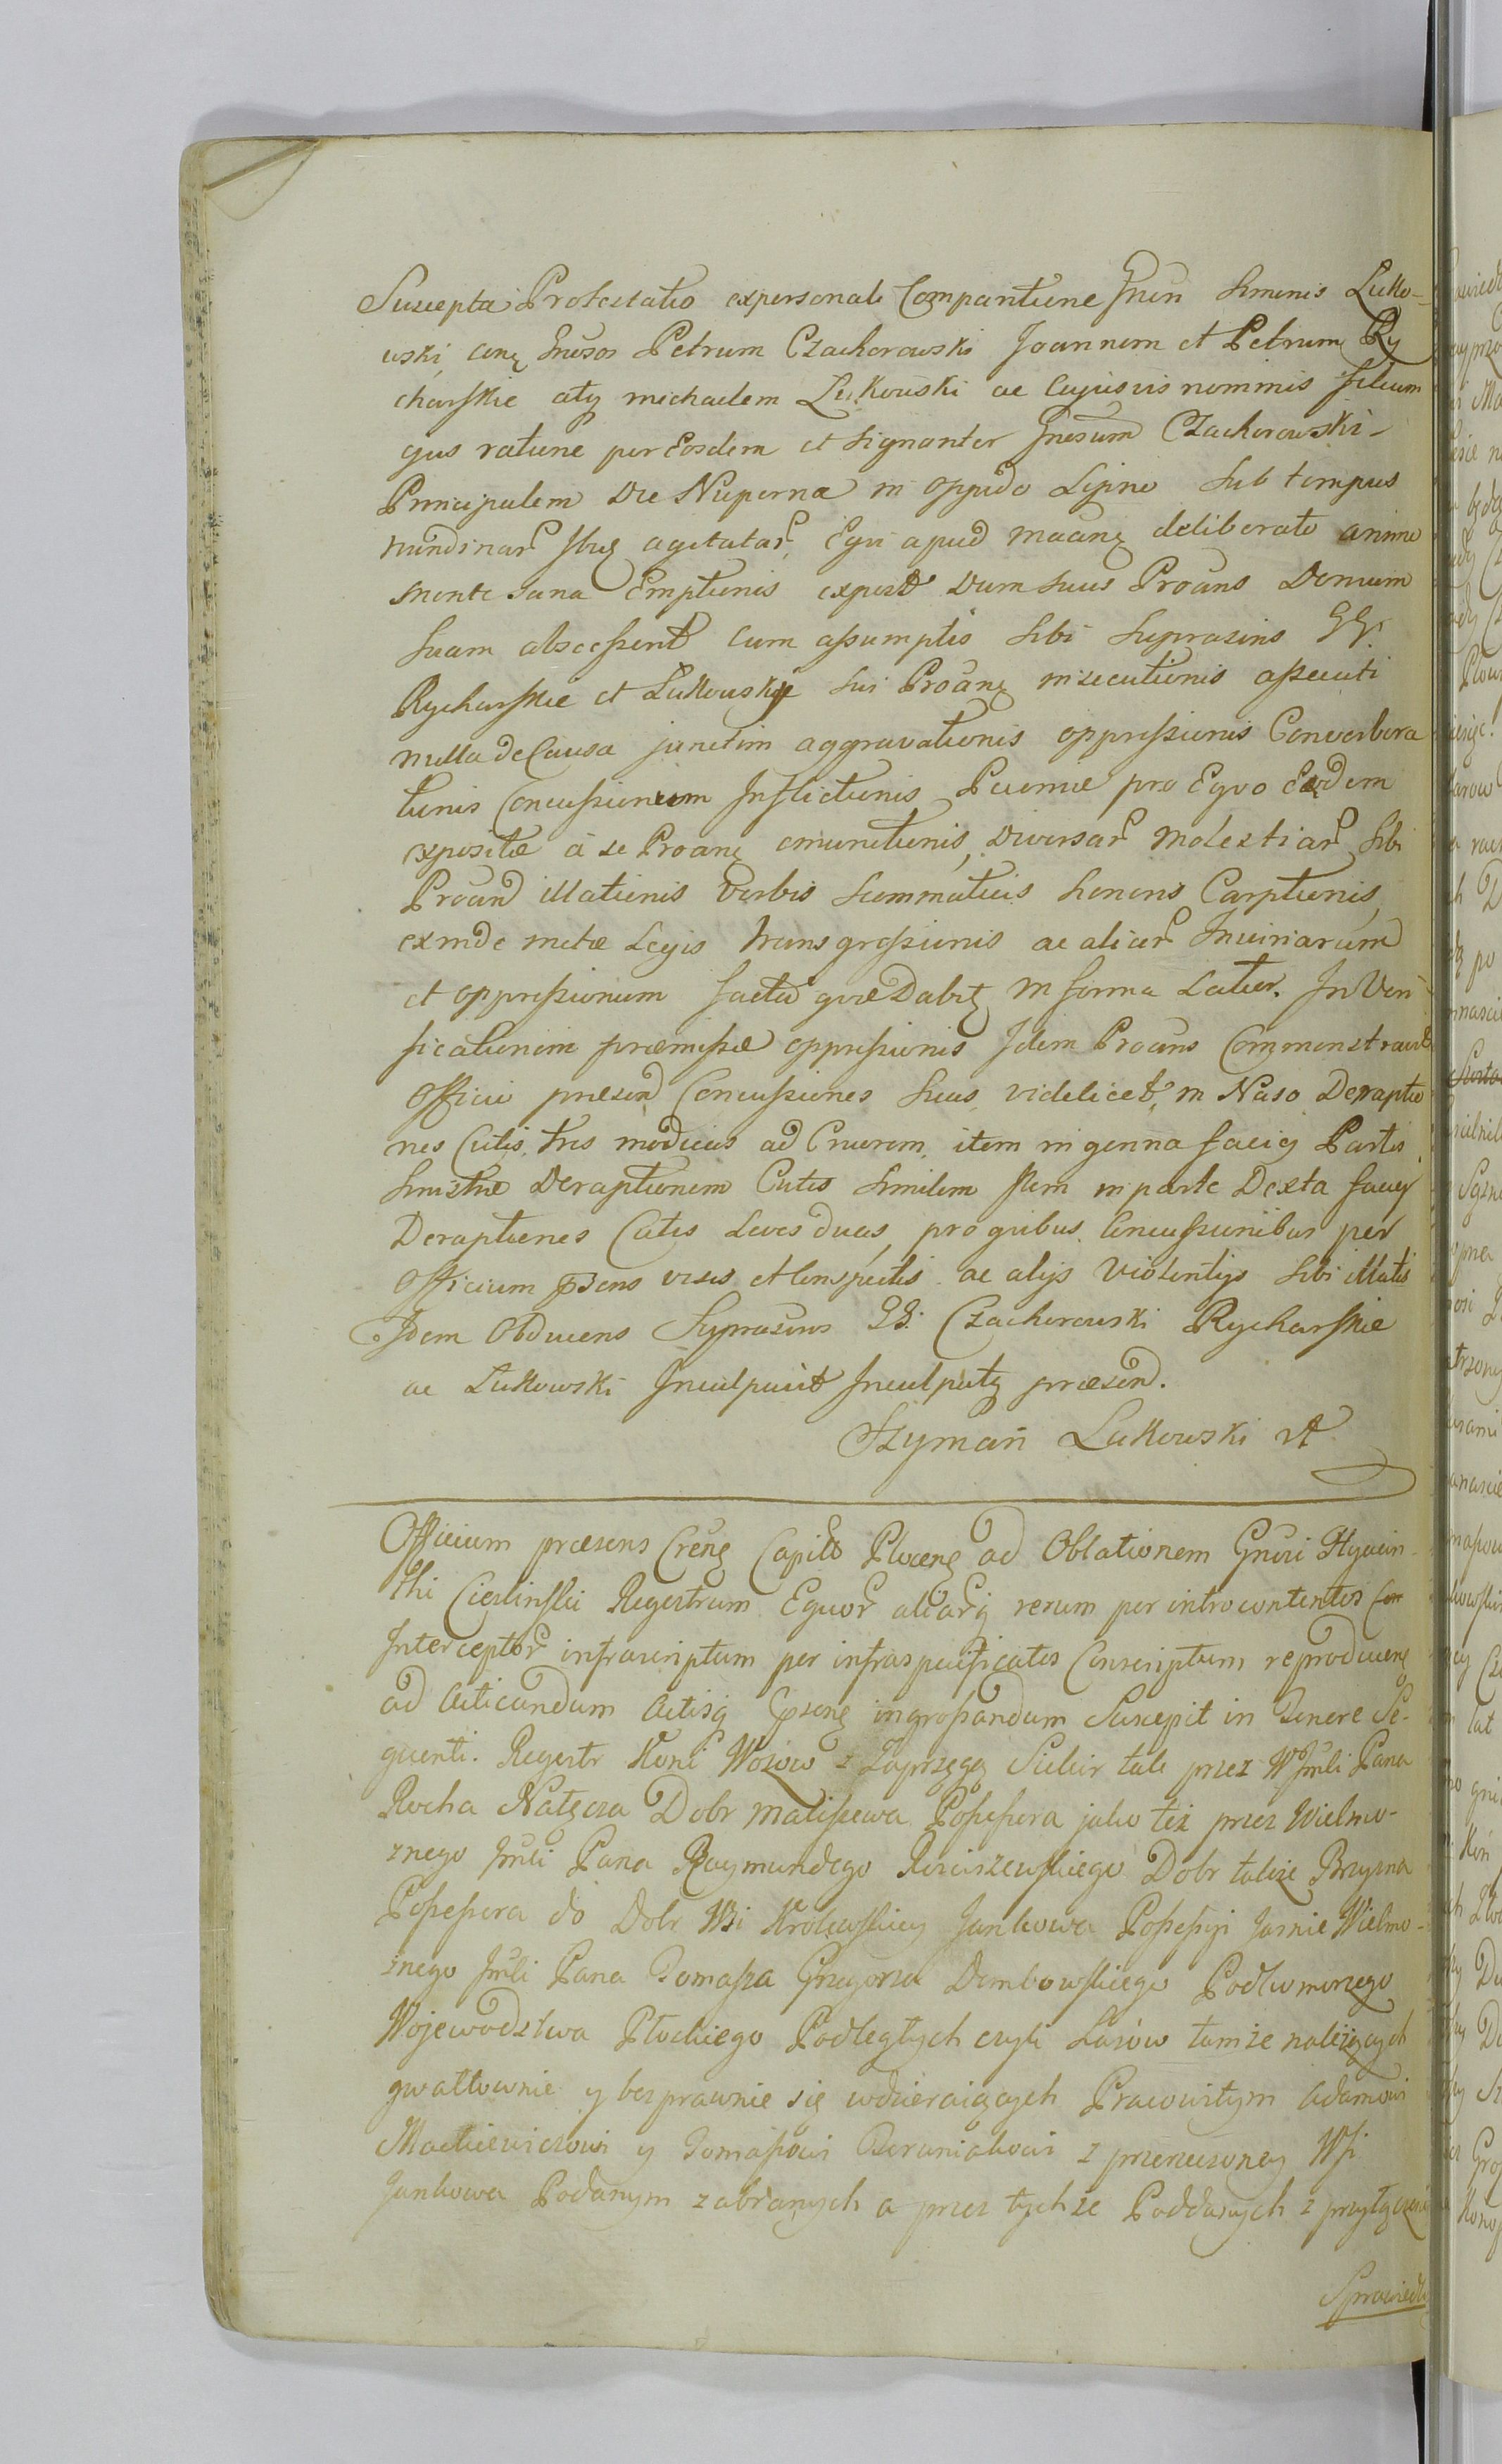 Suscepta Protestatio expersonali Comparitione Gnsn Simonis Luko-
wski, conq Gnesos Petrum Czachorowski Joannem et Petrum Ry
charskie atq michaelem Lukowski ac Cujusvis nominis
ratione per Eosdem et signanter Gnesum Czachorowski
Principalem Die Nuperna in oppido Lipno Sub tempus
nundinar agitatar, Equi apud deliberato animo
mente sana Emptionis Dum suus Proans Domum
Suam abscessent cum assumptis Sibi Suprasins GG.
Rycharskie et Lukowskie sui Proanq insecutionis assecuti
nulla de Causa junctim aggravationis oppressionis Converbera
tionis Concussionum Inflictionis Pecuniæ pro Equo Eodem
expositæ á se Proanq emunctionis, Diversar Molestiar Sibi
Proand illationis Verbis Scommaticis honoris Carptionis,
exinde metæ Legis transgressionis ac aliar Iniuriarum
et oppressionum facta quæ Dabitz in forma Latior. In Veri-
ficationem præmissæ oppressionis Idem Proans Commonstravit
Officio præsend Concussiones Suas videlicet, in Naso Deraptio
nes Cutis tres modicas ad Cruorem, item in genna faciej Partis
Sinistræ Deraptionem Cutis Similem Item in parte Dextra faciej
Deraptiones Cutis Leves duas, pro quibus Concussionibus per
Officium psens visis et Conspectis ac alijs Violentijs Sibi illatis
Idem Obducens Suprasinos GG. Czachorowski Rycharskie
ac Lukowski Inculpavit Inculpatq præsend.
Szyman Lukowski
Officium præsens Crenq Capitt Plocenq ad Oblationem Gnusi Hyacin-
thi Cieslinski Regestrum Equor aliarq rerum per introcontentos
Interceptor infrascriptum per infraspecificatos Conscriptum reproducenq
ad Acticandum Actisq psenq ingrossandum Suscepit in Tenere Se-
quenti. Regestr Koni Wozow z Zaprzęgą Siekir tak przez W Jmli Pana
Rocha Nałęcza Dobr Maliszewa Possessora jako też przez Wielmo-
znego Jmli Pana Raymundego Rosciszewskiego Dobr takze Brzyzna
Possessora do Dobr Wsi Krolewskiey Jankowa Possessyi Jasnie Wielmo-
żnego Jmli Pana Tomasza Grzegorza Dembowskiego Podkomorzego
Wojewodztwa Płockiego Podległych czyli Lasów tamże należących
gwałtownie y bezprawnie się wdzieraiących Pracowitym Adamowi
Mackiewiczowi y Tomaszowi Baraniakowi z przerzeczoney Wsi
Jankowa Poddanym zabranych a przez tychże Poddanych z przyłączeni
Sprawiedl